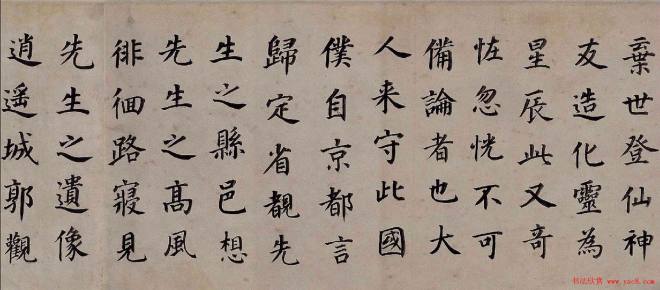 棄世登仙神
友造化靈為
星辰此又奇
恠忽恍不可
備論者也大
人来守此國
僕自京都言
歸定省覩先
生之縣邑想
先生之髙風
徘徊路寢見
先生之遺像
逍遥城郭觀
书法欣赏 www.yac8.com